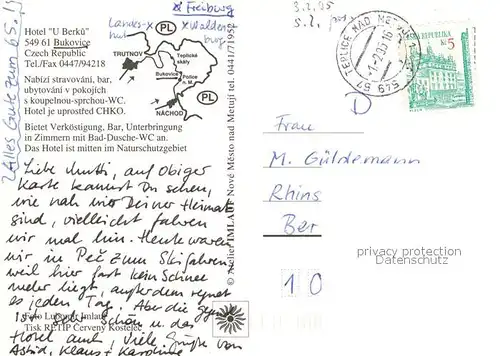 Hotel "U Berků"
549 61 Bukovice
Czech Republic
Tel./Fax 0447/94218
Nabízí stravování, bar,
ubytování v pokojích
s koupelnou-sprchou-WC.
Hotel je uprostřed CHKO.
Bietet Verköstigung, Bar, Unterbringung
in Zimmern mit Bad-Dusche-WC an.
Das Hotel ist mitten im Naturschutzgebiet
x Freiburg
Landes-x
hut
x Walden
burg
PL
TRUTNOV
Teplické
skály
Bukovice
Police
n. M.
NÁCHOD
PL
Alles Gute zum 65.
Liebe Mutti, auf obiger
Karte kannst Du sehen,
wie nah wir Deiner Heimat
sind, vielleicht fahren
wir mal hin. Heute waren
wir in Peč zum Skifahren
weil hier fast kein Schnee
mehr liegt, außerdem regnet
es jeden Tag. Aber die
ist sehr schön u. das
Hotel auch. Viele Grüße von
Astrid, Klaus + Karoline
Foto Lubomír Imlauf
Tisk RETIP Červený Kostelec
© Atelier IMLAUF Nové Město nad Metují tel. 0441/71195
3.2.95
TEPLICE NAD METUJÍ 1
-1.-2.95-16
549 57
ČESKÁ REPUBLIKA
Kč 5
D
Frau
M. Güldemann
Rhins
Ber
privacy protection
Datenschutz
10